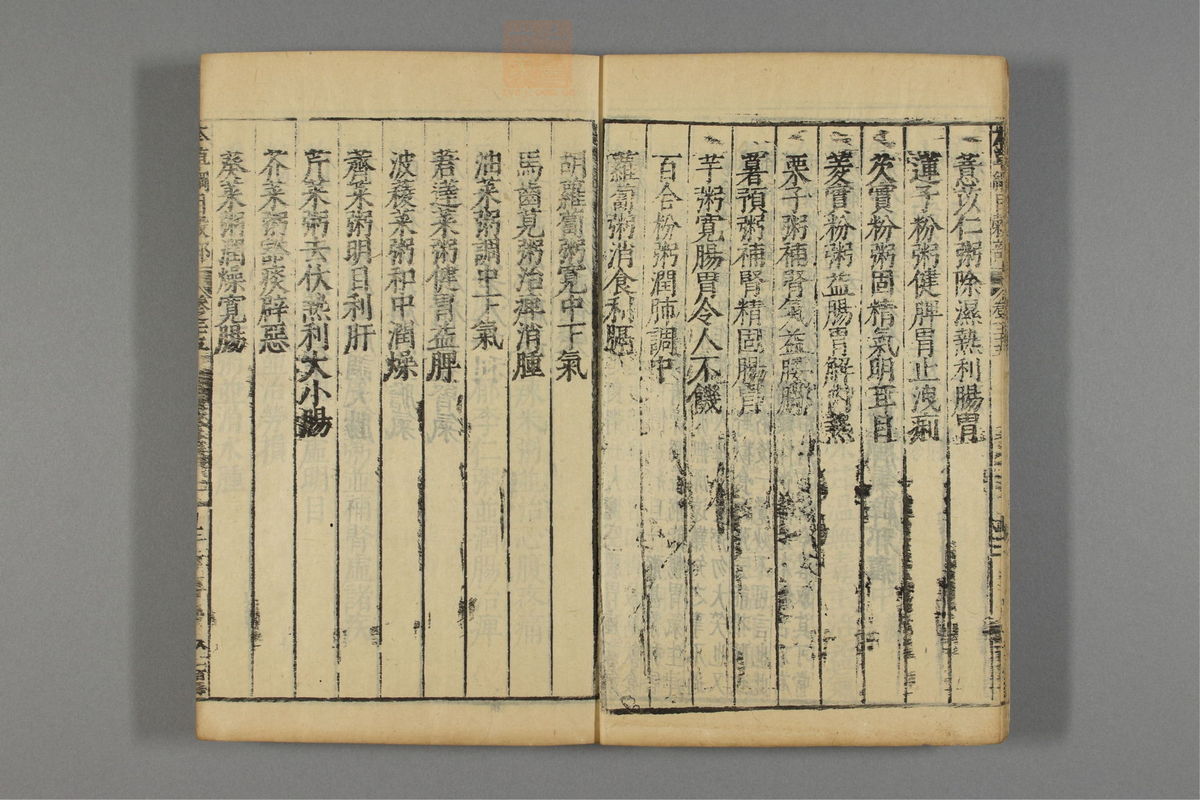 薏苡仁粥除濕熱利腸胃
蓮子粉粥健脾胃止洩痢
芡實粉粥固精氣明耳目
菱實粉粥益腸胃解內熱
栗子粥補腎氣益腰脚
薯預粥補腎精固腸胃
芋粥寬腸胃令人不饑
百合粉粥潤肺調中
蘿蔔粥消食利膈
胡蘿蔔粥寬中下氣
馬齒莧粥治痺消腫
油菜粥調中下氣
莙薘菜粥健胃益脾
波薐菜粥和中潤燥
薺菜粥明目利肝
芹菜粥去伏熱利大小腸
芥菜粥豁痰辟惡
葵菜粥潤燥寬腸